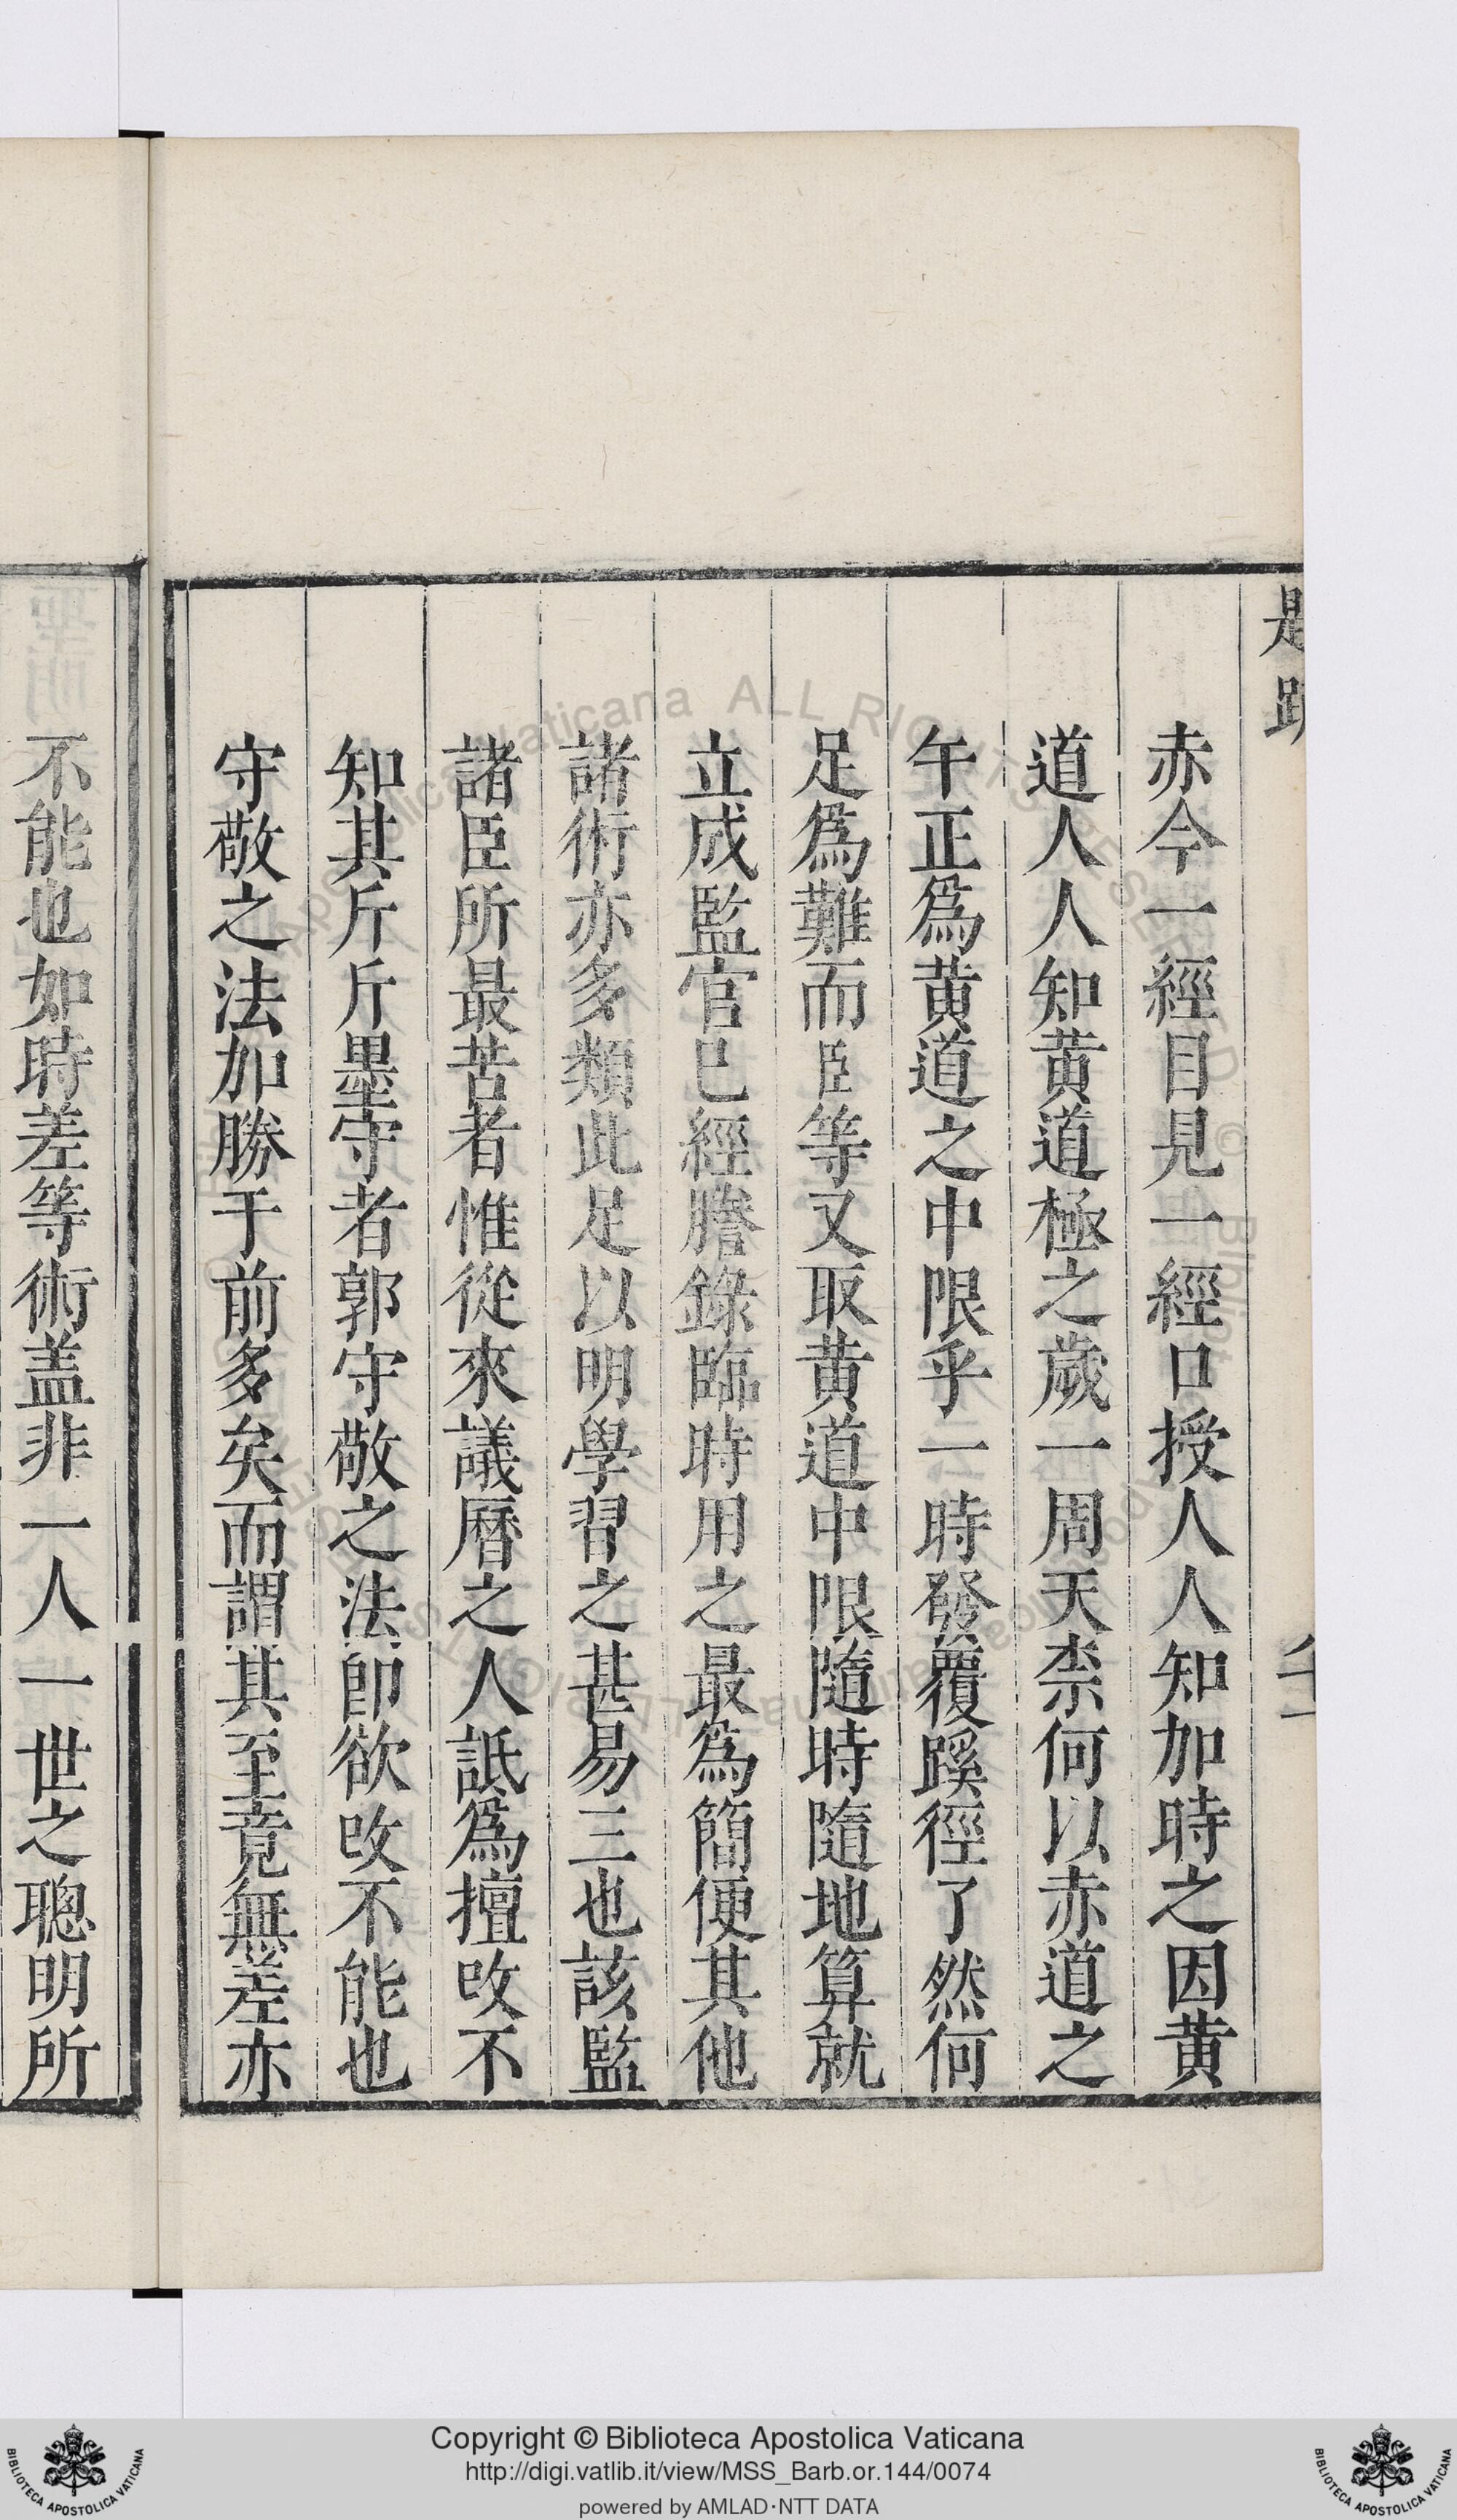 赤今一經目見一經口授人人知加時之因黃
道人人知黃道極之歲一周天柰何以赤道之
午正爲黃道之中限乎一時發覆蹊徑了然何
足爲難而臣等又取黃道中限隨時隨地算就
立成監官已經謄錄臨時用之最爲簡便其他
諸術亦多類此足以明學習之甚易三也該監
諸臣所最苦者惟從來議曆之人詆爲擅攺不
知其斤斤墨守者郭守敬之法卽欲攺不能也
守敬之法加勝于前多矣而謂其至竟無差亦
不能也如時差等術盖非一人一世之聰明所
Copyright © Biblioteca Apostolica Vaticana
http://digi.vatlib.it/view/MSS_Barb.or.144/0074
powered by AMLAD·NTT DATA
BIBLIOTECA APOSTOLICA VATICANA
BIBLIOTECA APOSTOLICA VATICANA